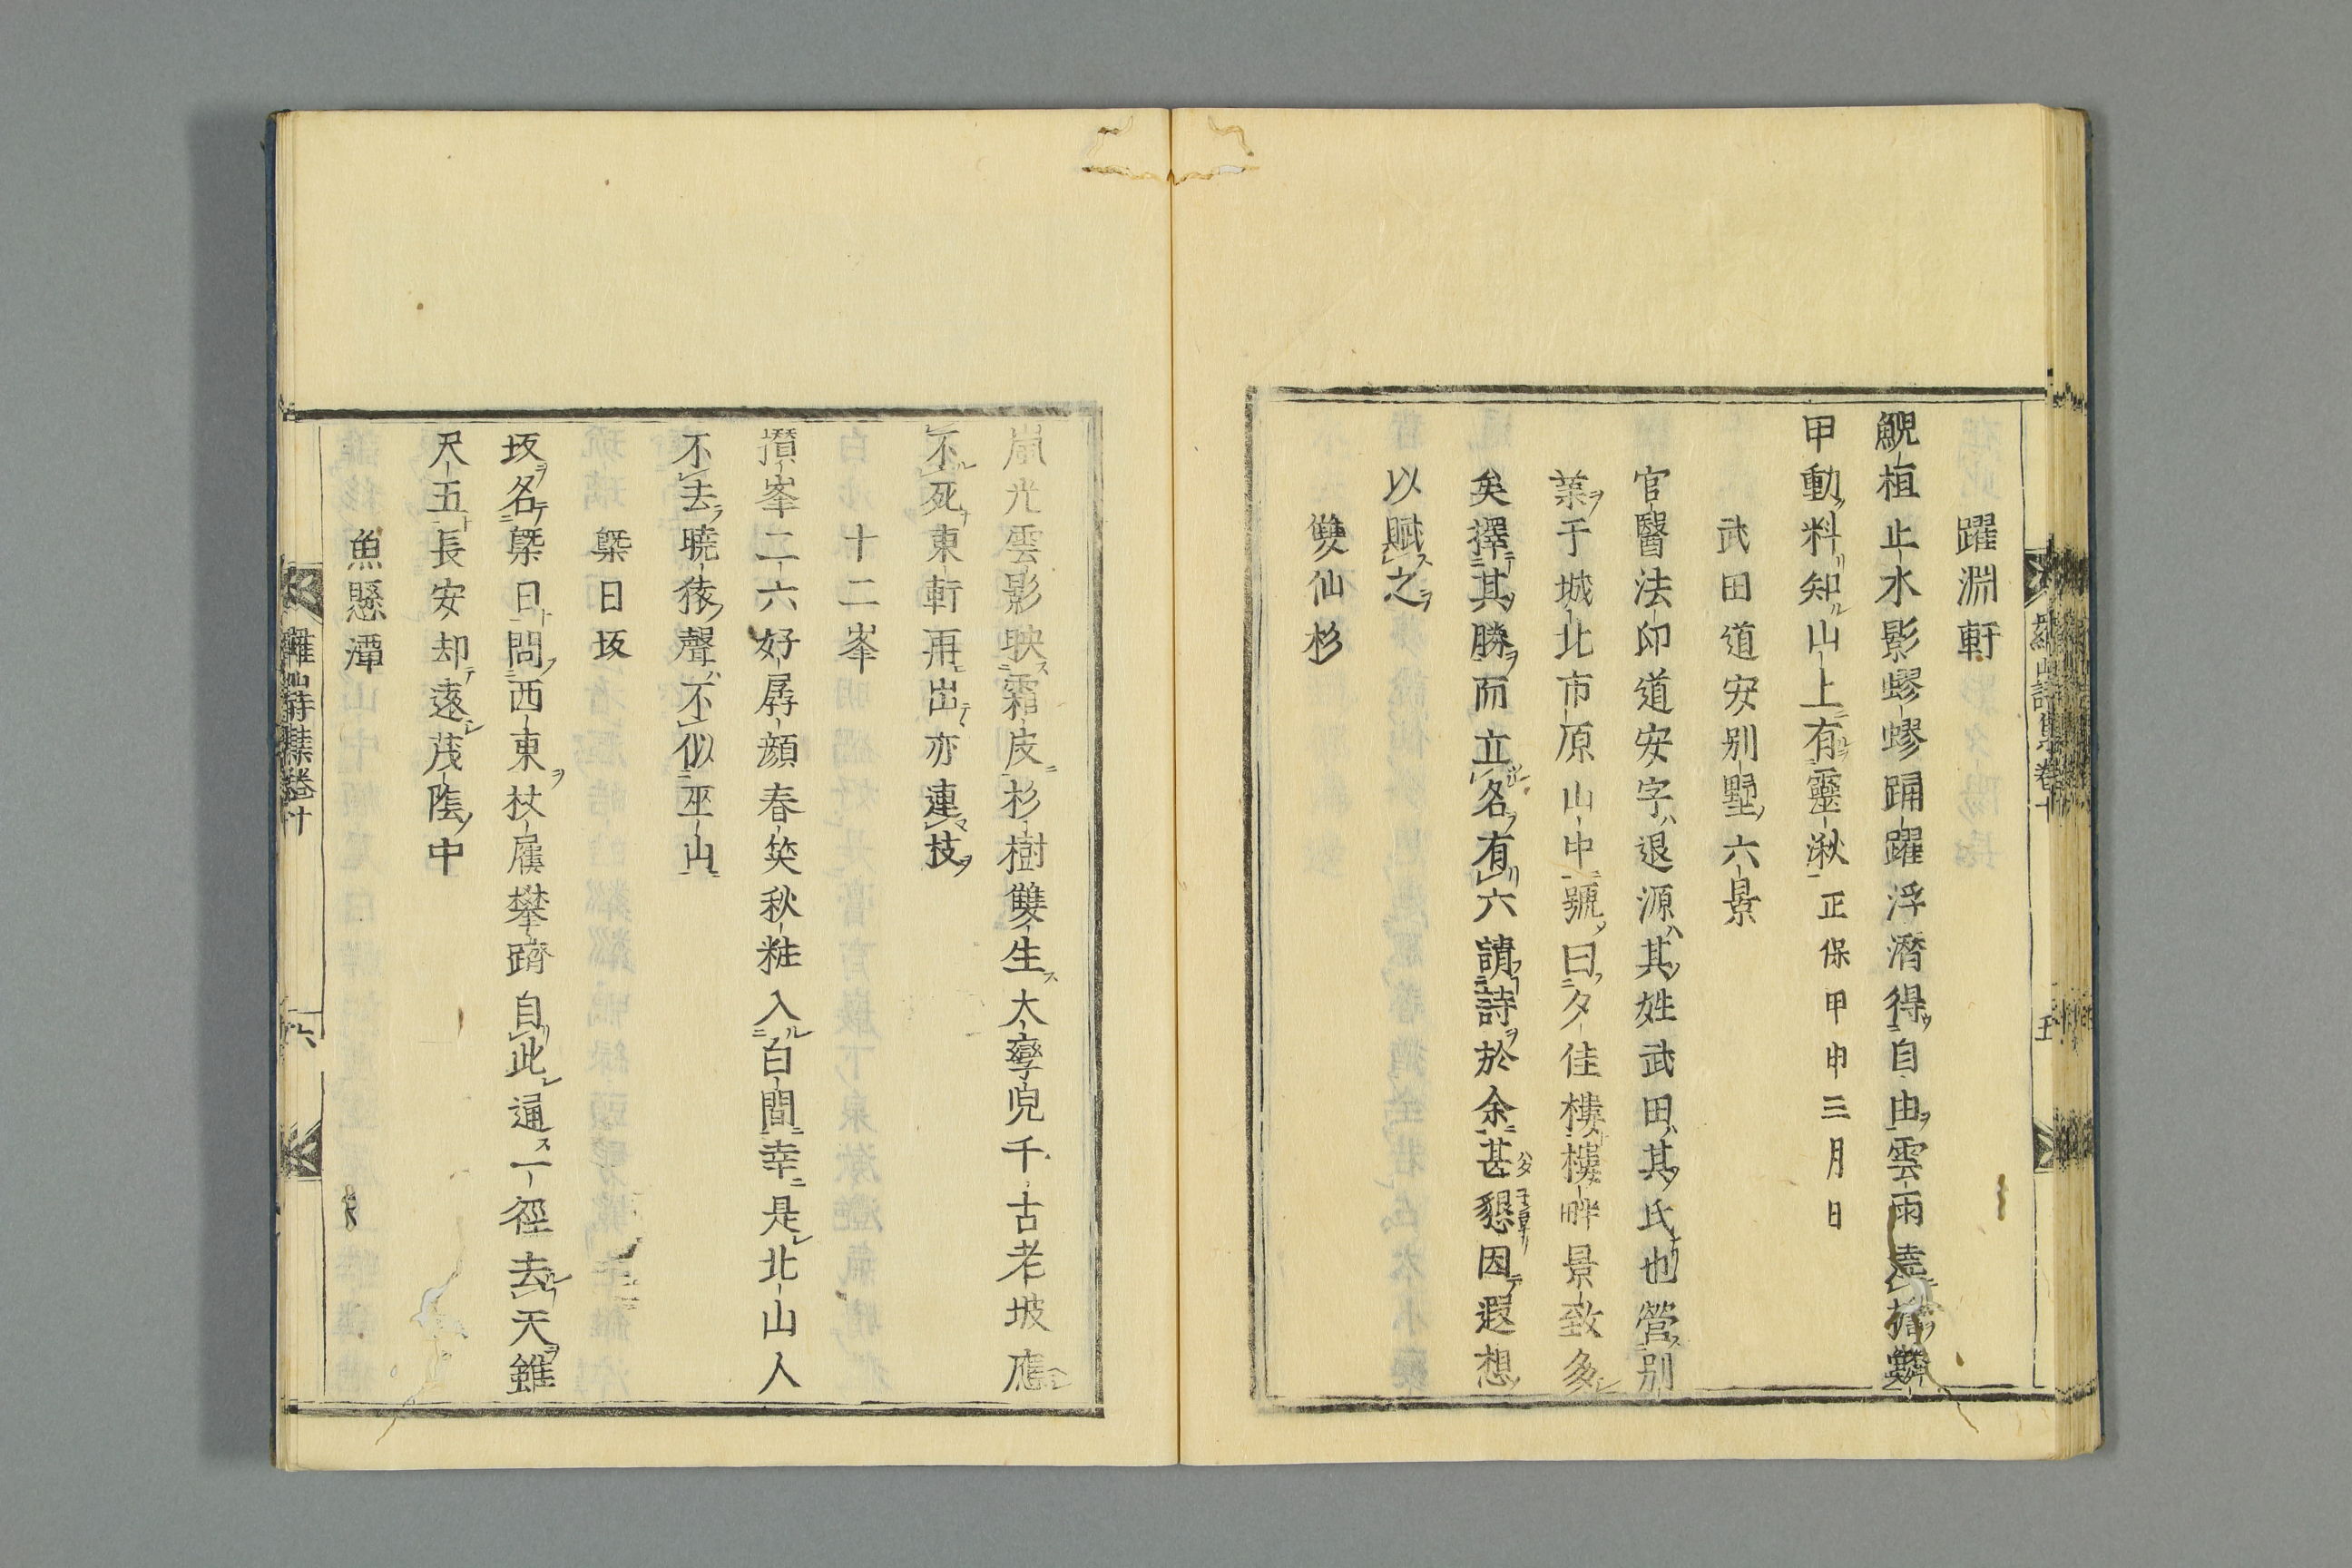 躍淵軒
鯢桓止水影蟉蟉踊躍浮潛得自由雲雨
甲動料知山上有靈湫正保甲申三月日
武田道安別墅六景
官醫法印道安字退源其姓武田其氏也營別
業于城北市原山中號曰夕佳樓樓畔景致多
矣擇其勝而立名有六請詩於余甚懇因遐想
以賦之
雙仙杉
嵐光雲影映霜皮杉樹雙生大孿兒千古老坡應
不死東軒再出亦連枝
十二峯
攢峯二六好孱顔春笑秋粧入白間幸是北山人
不去曉猿聲不似巫山
㮣日坂
坂名㮣日問西東杖屨攀躋自此通一徑去天雖
尺五長安却遠茂陰中
魚懸潭
羅山詩集卷十
五
羅山詩集卷十
六